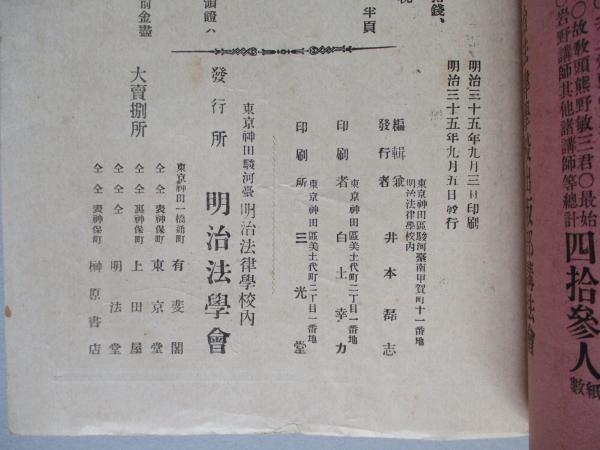 〇故教頭熊野敏三君〇最始
〇岩野講師其他諸講師等總計
四拾參人
紙數
明治三十五年九月三日印刷
明治三十五年九月五日發行
東京神田區駿河臺南甲賀町十一番地
明治法律學校內
編輯兼
發行者 井本磊志
東京神田區美土代町二丁目一番地
印刷者 白土幸力
東京神田區美土代町二丁目一番地
印刷所 三光堂
東京神田駿河臺明治法律學校內
發行所 明治法學會
大賣捌所
東京神田一橋通町 有斐閣
仝仝表神保町 東京堂
仝仝裏神保町 上田屋
仝仝仝 明法堂
仝仝表神保町 榊原書店
半頁
領證ハ
前金盡